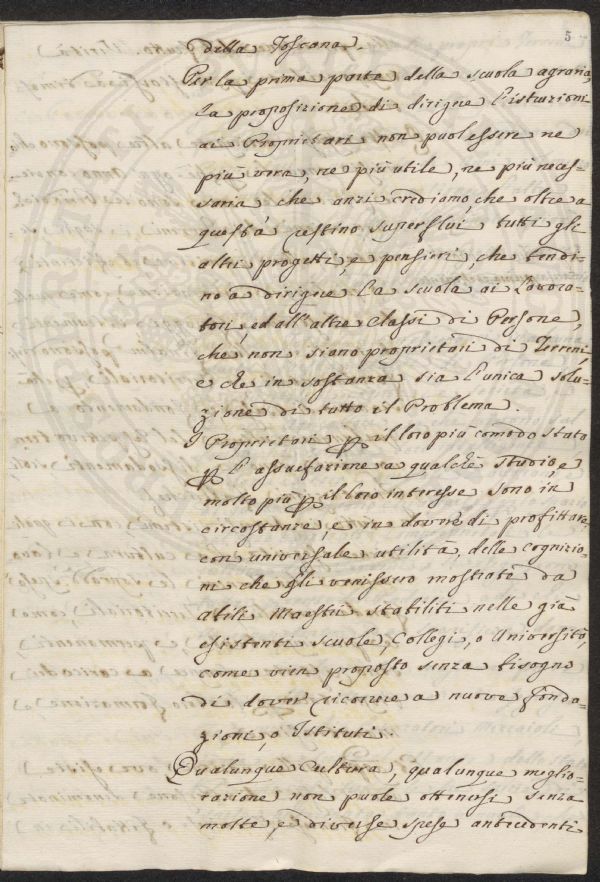 5
della Toscana.
Per la prima parte della scuola agraria,
la proposizione di dirigere l'istruzioni
ai Proprietari non puol essere ne
più vera, ne più utile, ne più neces-
saria che anzi crediamo, che oltre a
questa restino superflui tutti gli
altri progetti, e pensieri, che tendi-
no a dirigere la scuola ai Lavora-
tori, ed all'altre Classi di Persone,
che non siano proprietari di Terreni,
e che in sostanza sia l'unica solu-
zione di tutto il Problema.
I Proprietari p il loro più comodo stato
p l'assuefazione a qualche studio, e
molto più p il loro interesse sono in
circostanze, e in dovere di profittare
con universale utilità, delle cognizio-
ni che gli venissero mostrate da
abili Maestri stabiliti nelle già
esistenti scuole, Collegi, o Università,
come vien proposto senza bisogno
di dover ricorrere a nuove fonda-
zioni, o Istituti.
Qualunque Cultura, qualunque meglio-
razione non puole ottenersi senza
molte, e diverse spese antecedenti